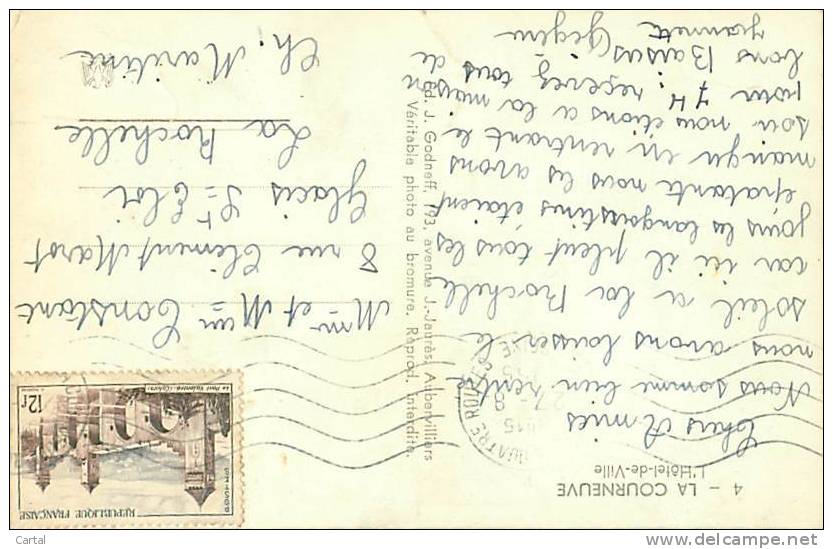 4 - LA COURNEUVE
L'Hôtel-de-Ville
Chers Amies
Nous somme bien rentre
nous avons laisser le
soleil a la Rochelle
car ici il pleut tous les
jours les langoustines étaient
epatante nous les avons
manger en rentrant le
soir nous étions a la maison
pour 7H. recevez tous de
bons Baisers Gégène
Jeannette
Ed. J. Godneff, 193, avenue J.-Jaurès, Aubervilliers
Véritable photo au bromure. Reprod. interdite.
QUATRE ROUTES
15
8
REPUBLIQUE FRANÇAISE
12f
Le Pont Valentré (Cahors)
POSTES
Mmr et Mme Constant
8 rue Clément Marot
Glacis St Eloi
La Rochelle
Ch. Maritime
Cartal
delcampe.net